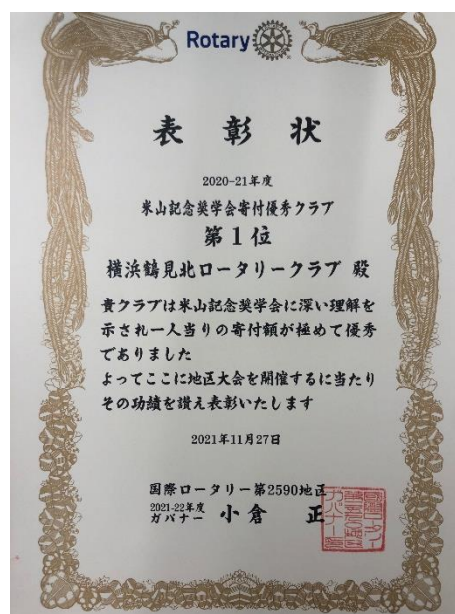 Rotary
表彰状
2020-21年度
米山記念奨学会寄付優秀クラブ
第1位
横浜鶴見北ロータリークラブ 殿
貴クラブは米山記念奨学会に深い理解を
示され一人当りの寄付額が極めて優秀
でありました
よってここに地区大会を開催するに当たり
その功績を讃え表彰いたします
2021年11月27日
国際ロータリー第2590地区
2021-22年度
ガバナー 小倉 正